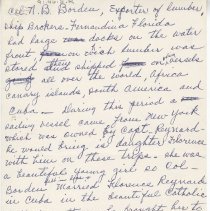 Col. A. B. Borden, Exporter of lumber
Ship Brokers - Fernandina Florida
had large docks on the water
front on which lumber was
stored then shipped on vessels
all over the world, Africa
canary islands, South America and
Cuba - During this period a
sailing vessel came from New York
which was owned by Capt. Reynard -
he would bring his daughter Florence
with him on these trips - she was
a beautiful young girl so Col.
Borden Married Florence Reynard
in Cuba in the beautiful Catholic
brought her to